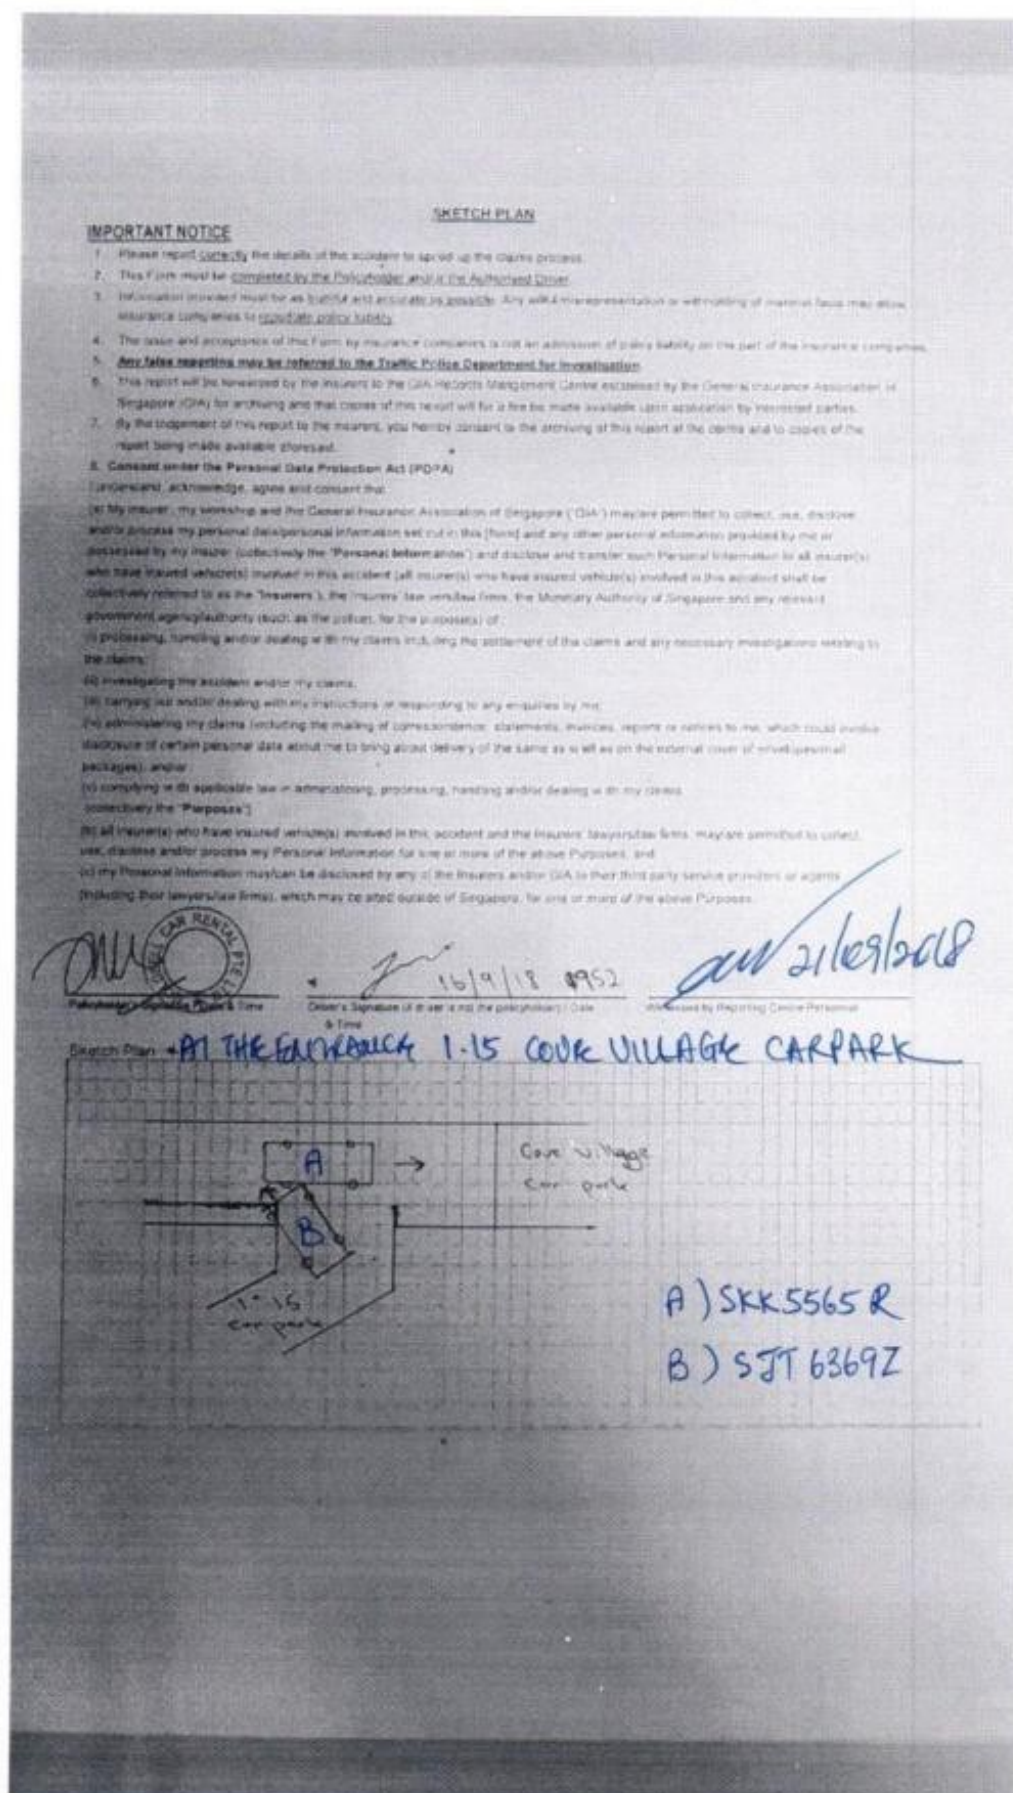 SKETCH PLAN
IMPORTANT NOTICE
1. Please report correctly the details of the accident to speed up the claims process.
2. This Form must be completed by the Policyholder and/or the Authorised Driver.
3. Information provided must be as truthful and accurate as possible. Any wilful misrepresentation or withholding of material facts may allow
insurance companies to repudiate policy liability.
4. The issue and acceptance of this Form by insurance companies is not an admission of policy liability on the part of the insurance companies.
5. Any false reporting may be referred to the Traffic Police Department for investigation.
6. This report will be forwarded by the insurers to the GIA Records Management Centre established by the General Insurance Association of
Singapore (GIA) for archiving and that copies of this report will for a fee be made available upon application by interested parties.
7. By the lodgement of this report to the insurers, you hereby consent to the archiving of this report at the centre and to copies of the
report being made available aforesaid.
8. Consent under the Personal Data Protection Act (PDPA)
I understand, acknowledge, agree and consent that
(a) My insurer, my workshop and the General Insurance Association of Singapore ("GIA") may/are permitted to collect, use, disclose
and/or process my personal data/personal information set out in this [form] and any other personal information provided by me or
possessed by my insurer (collectively the "Personal Information") and disclose and transfer such Personal Information to all insurer(s)
who have insured vehicle(s) involved in this accident (all insurer(s) who have insured vehicle(s) involved in this accident shall be
collectively referred to as the "Insurers"), the Insurers' lawyers/law firms, the Monetary Authority of Singapore and any relevant
government agency/authority (such as the police), for the purpose(s) of :
(i) processing, handling and/or dealing with my claims including the settlement of the claims and any necessary investigations relating to
the claims;
(ii) investigating the accident and/or my claims;
(iii) carrying out and/or dealing with my instructions or responding to any enquiries by me;
(iv) administering my claims (including the mailing of correspondence, statements, invoices, reports or notices to me, which could involve
disclosure of certain personal data about me to bring about delivery of the same as well as on the external cover of envelopes/mail
packages); and/or
(v) complying with applicable law in administering, processing, handling and/or dealing with my claims.
(collectively the "Purposes")
(b) all insurer(s) who have insured vehicle(s) involved in this accident and the Insurers' lawyers/law firms, may/are permitted to collect,
use, disclose and/or process my Personal Information for one or more of the above Purposes; and
(c) my Personal Information may/can be disclosed by any of the Insurers and/or GIA to their third party service providers or agents
(including their lawyers/law firms), which may be sited outside of Singapore, for one or more of the above Purposes.
CAR RENTAL PTE
16/9/18 1952
21/09/2018
Policyholder's Signature / Date & Time
Driver's Signature (if driver is not the policyholder) / Date
& Time
Witnessed by Reporting Centre Personnel
Sketch Plan AT THE ENTRANCE 1-15 COVE VILLAGE CARPARK
A
→
Cove Village
car park
B
1-15
car park
A) SKK5565R
B) SJT 6369Z